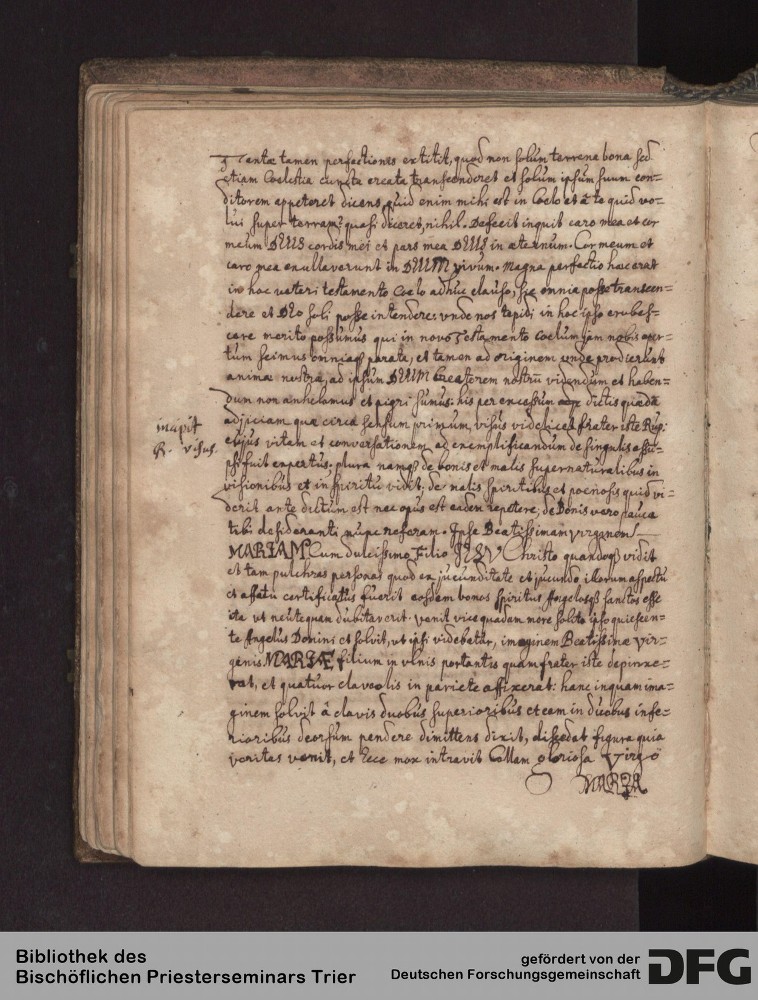 Tantæ tamen perfectiones extitit, quod non solum terrena bona sed
etiam Coelestia cuncta creata transcenderet et solum ipsum suum con=
ditorem appeteret dicens, quid enim mihi est in Coelo et â te quid vo=
lui super terram? quasi diceret, nihil. Defecit inquit caro mea et cor
meum DEUS cordis mei et pars mea DEUS in æternum. Cor meum et
caro mea exultaverunt in DEUM vivum. Magna perfectio hæc erat
in hoc veteri testamento Coelo adhuc clauso, sic omnia posse transcen=
dere et DEO soli posse intendere: unde nos tepidi in hoc ipso erubes=
cere merito possumus qui in novo Testamento coelum jam nobis aper=
tum scimus omniaq parata, et tamen ad originem unde prodierunt
animæ nostræ, ad ipsum DEUM Creatorem nostrū videndum et haben=
dum non anhelamus et pigri sumus: his per excessum dictis quædā
adjiciam quæ circa sensum primum, visus videlicet frater iste Rup:
cujus vitam et conversationem ad exemplificandum de singulis assu=
psi fuit expertus; plura namq de bonis et malis supernaturalibus in
visionibus et in spiritu vidit; de malis spiritibus et poenosis quid vi=
derit ante dictum est nec opus est eadem repetere; de Bonis vero pauca
tibi desideranti nunc referam. Ipse Beatissimam virginem
MARIAM Cum dulcissimo Filio JESU Christo quandoq vidit
et tam pulchras personas quod ex jucunditate et jucundo illorum aspectu
et affatu certificatus fuerit eosdem bonos spiritus Angelosq sanctos esse
ita ut neutiquam dubitaverit. venit vice quadam more solito ipso quiescen=
te Angelus Domini et solvit, ut ipsi videbatur, imaginem Beatissimæ vir=
ginis MARIÆ filium in ulnis portantis quam frater iste depinxe=
rat, et quatuor claveolis in pariete affixerat: hanc inquam ima=
ginem solvit â clavis duobus superioribus et eam in duobus infe=
rioribus deorsum pendere dimittens dixit, discedat figura quia
veritas venit, et Ecce mox intravit Cellam gloriosa Virgo
MARIA
incipit
R. visus
Bibliothek des
Bischöflichen Priesterseminars Trier
gefördert von der
Deutschen Forschungsgemeinschaft
DFG